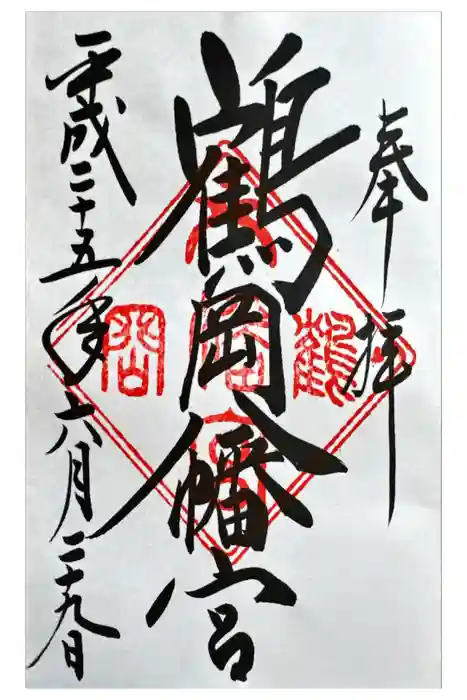 奉拝
鶴岡八幡宮
平成二十五年六月二十九日